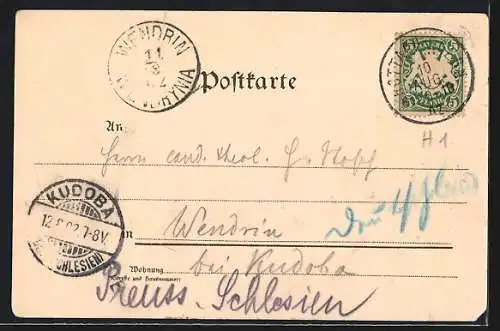 WENDRIN
11/8 02
WENDRYNIA
Postkarte
10
AUG
5 5
PFENNIG
5 5
H 1
An
Herrn cand. theol.
KUDOBA
12.8.02.7-8V.
SCHLESIEN
in Wendrin
bei Kudoba
Wohnung
(Straße und Hausnummer)
Preuss. Schlesien